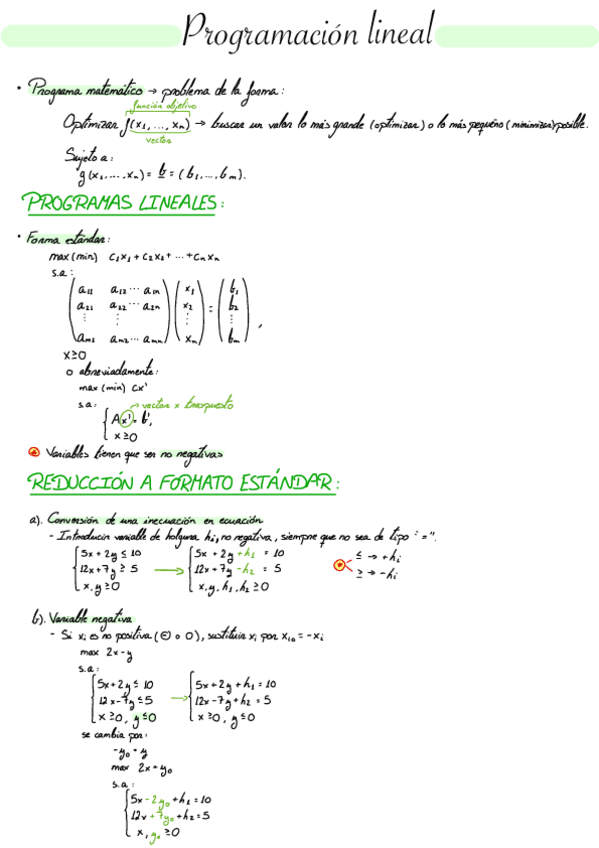 Programación lineal
• Programa matemático → problema de la forma:
función objetivo
Optimizar f(x₁, ..., xₙ) → buscar un valor lo más grande (optimizar) o lo más pequeño (minimizar) posible.
vector
Sujeto a:
g(x₁, ..., xₙ) = b = (b₁, ..., bₘ).
PROGRAMAS LINEALES:
• Forma estándar:
max (min) c₁x₁ + c₂x₂ + ... + cₙxₙ
s.a:
( a₁₁ a₁₂ ... a₁ₙ ) ( x₁ ) ( b₁ )
( a₂₁ a₂₂ ... a₂ₙ ) ( x₂ ) = ( b₂ )
( ⋮ ⋮ ⋮ ) ( ⋮ ) ( ⋮ )
( aₘ₁ aₘ₂ ... aₘₙ ) ( xₙ ) ( bₘ ) ,
x ≥ 0
o abreviadamente:
max (min) cx'
s.a: → vector x traspuesto
{ Ax' = b',
x ≥ 0
Variables tienen que ser no negativas
REDUCCIÓN A FORMATO ESTÁNDAR:
a). Conversión de una inecuación en ecuación
- Introducir variable de holgura hᵢ, no negativa, siempre que no sea de tipo "=".
{ 5x + 2y ≤ 10 { 5x + 2y + h₁ = 10 ≤ → + hᵢ
12x + 7y ≥ 5 → 12x + 7y - h₂ = 5 ≥ → - hᵢ
x, y ≥ 0 x, y, h₁, h₂ ≥ 0
b). Variable negativa
- Si xᵢ es no positiva (⊖ o 0), sustituir xᵢ por xᵢ₀ = -xᵢ
max 2x - y
s.a:
{ 5x + 2y ≤ 10 { 5x + 2y + h₁ = 10
12x - 7y ≤ 5 → 12x - 7y + h₂ = 5
x ≥ 0, y ≤ 0 x ≥ 0, y ≤ 0
se cambia por:
-y₀ = y
max 2x + y₀
s.a:
{ 5x - 2y₀ + h₁ = 10
12x + 7y₀ + h₂ = 5
x, y₀ ≥ 0